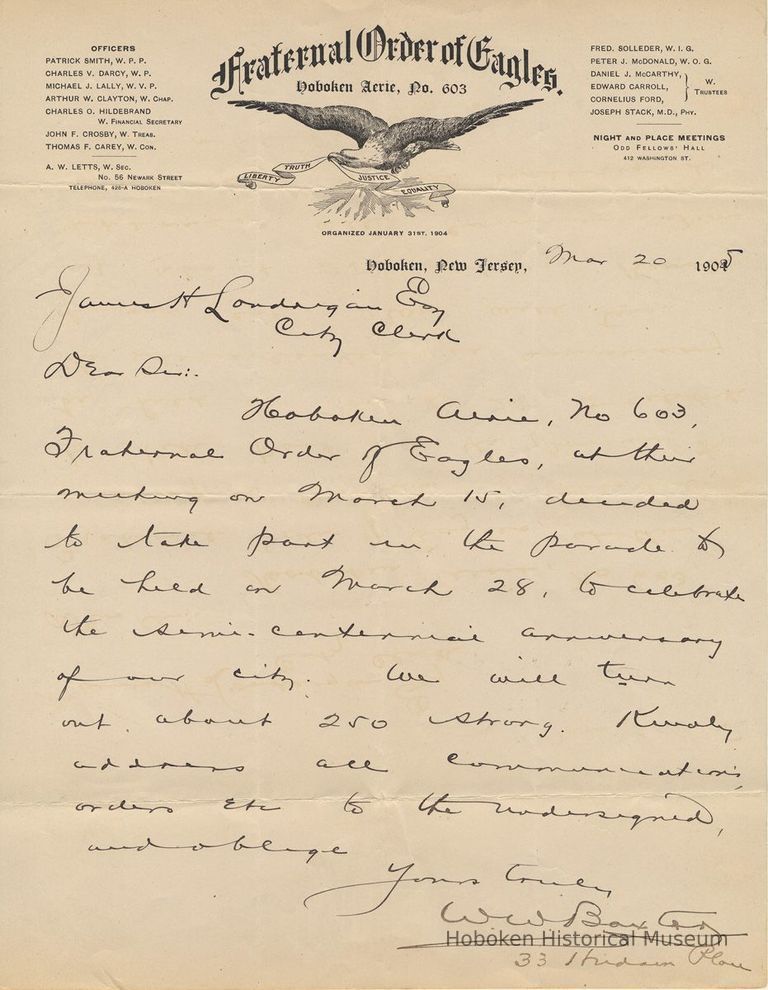 Fraternal Order of Eagles.
Hoboken Aerie, No. 603
OFFICERS
PATRICK SMITH, W. P. P.
CHARLES V. DARCY, W. P.
MICHAEL J. LALLY, W. V. P.
ARTHUR W. CLAYTON, W. CHAP.
CHARLES O. HILDEBRAND
W. FINANCIAL SECRETARY
JOHN F. CROSBY, W. TREAS.
THOMAS F. CAREY, W. CON.
A. W. LETTS, W. SEC.
NO. 56 NEWARK STREET
TELEPHONE, 426-A HOBOKEN
LIBERTY TRUTH JUSTICE EQUALITY
ORGANIZED JANUARY 31ST. 1904
FRED. SOLLEDER, W. I. G.
PETER J. McDONALD, W. O. G.
DANIEL J. McCARTHY,
EDWARD CARROLL,
CORNELIUS FORD,
W. TRUSTEES
JOSEPH STACK, M.D., PHY.
NIGHT AND PLACE MEETINGS
ODD FELLOWS' HALL
412 WASHINGTON ST.
Hoboken, New Jersey, Mar 20 1905
James H Londrigan Esq
City Clerk
Dear Sir:-
Hoboken Aerie, No 603,
Fraternal Order of Eagles, at their
meeting on March 15, decided
to take part in the parade to
be held on March 28, to celebrate
the semi-centennial anniversary
of our city. We will turn
out about 250 strong. Kindly
address all communications,
orders etc to the undersigned,
and oblige
Yours truly,
W W Baxter
33 Hudson Place
Hoboken Historical Museum